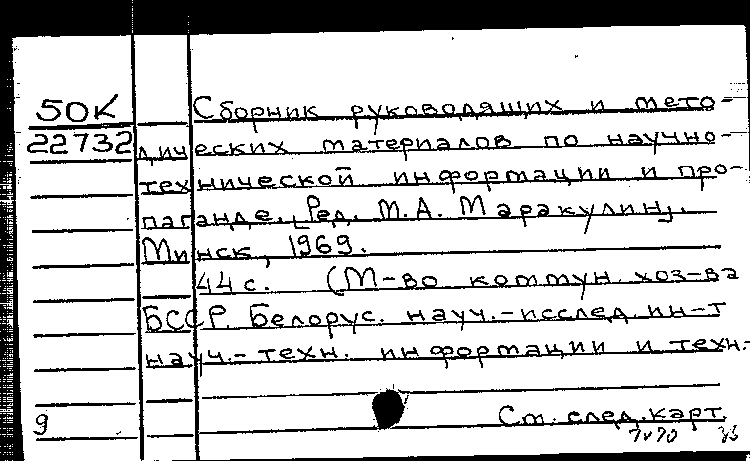 50К Сборник руководящих и мето-
22732 дических материалов по научно-
технической информации и про-
паганде. [Ред. М.А. Маракулин].
Минск, 1969.
44 с. (М-во коммун. хоз-ва
БССР. Белорус. науч.-исслед. ин-т
науч.-техн. информации и техн.-
9 См. след. карт.